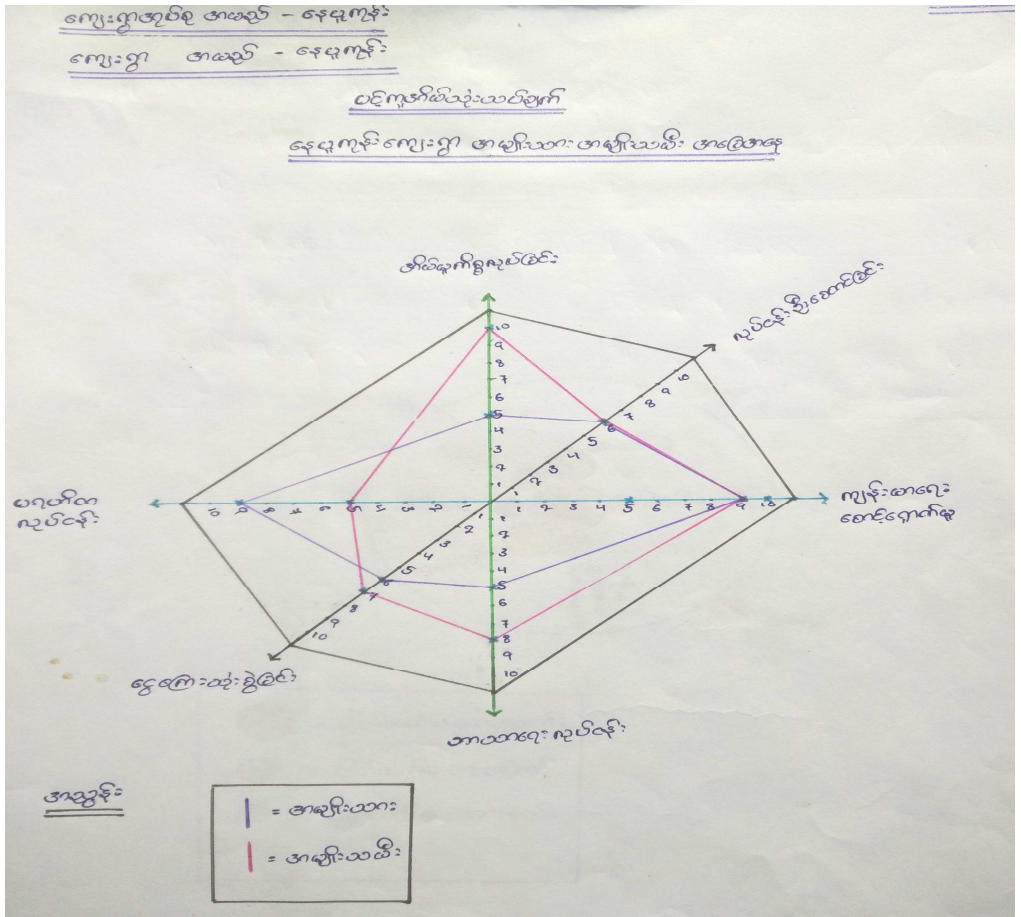 ကျေးရွာအုပ်စု အမည် - နေပူကုန်း
ကျေးရွာ အမည် - နေပူကုန်း
ပင့်ကူအိမ်သုံးသပ်ချက်
နေပူကုန်းကျေးရွာ အမျိုးသား အမျိုးသမီး အခြေအနေ
အိမ်မှုကိစ္စလုပ်ခြင်း
လုပ်ငန်းဦးဆောင်ခြင်း
ကျန်းမာရေး
စောင့်ရှောက်မှု
ပရဟိတ
လုပ်ငန်း
ငွေကြေးသုံးစွဲခြင်း
ဘာသာရေးလုပ်ငန်း
10
9
8
7
6
5
4
3
2
1
1 2 3 4 5 6 7 8 9 10
1 2 3 4 5 6 7 8 9 10
10 9 8 7 6 5 4 3 2 1
1 2 3 4 5 6 7 8 9 10
1
2
3
4
5
6
7
8
9
10
အညွှန်း
= အမျိုးသား
= အမျိုးသမီး